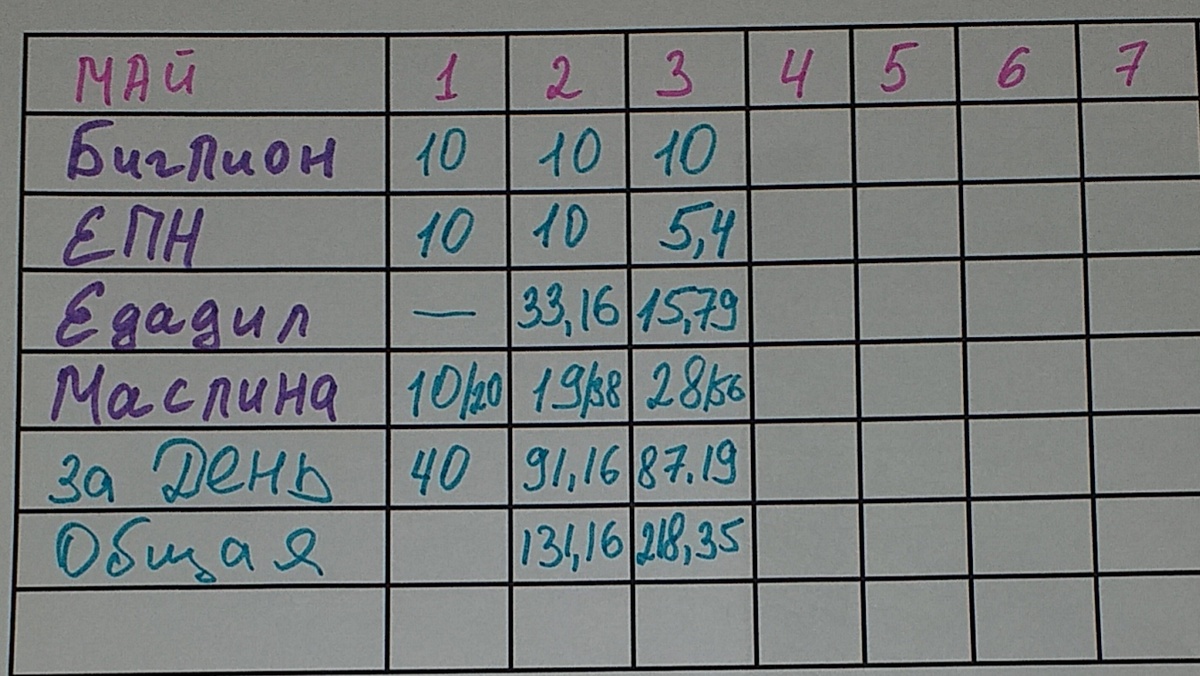 МАЙ 1 2 3 4 5 6 7
Биглион 10 10 10
ЕПН 10 10 5,4
Едадил — 33,16 15,79
Маслина 10/20 19/38 28/56
за День 40 91,16 87.19
Общая 131,16 218,35